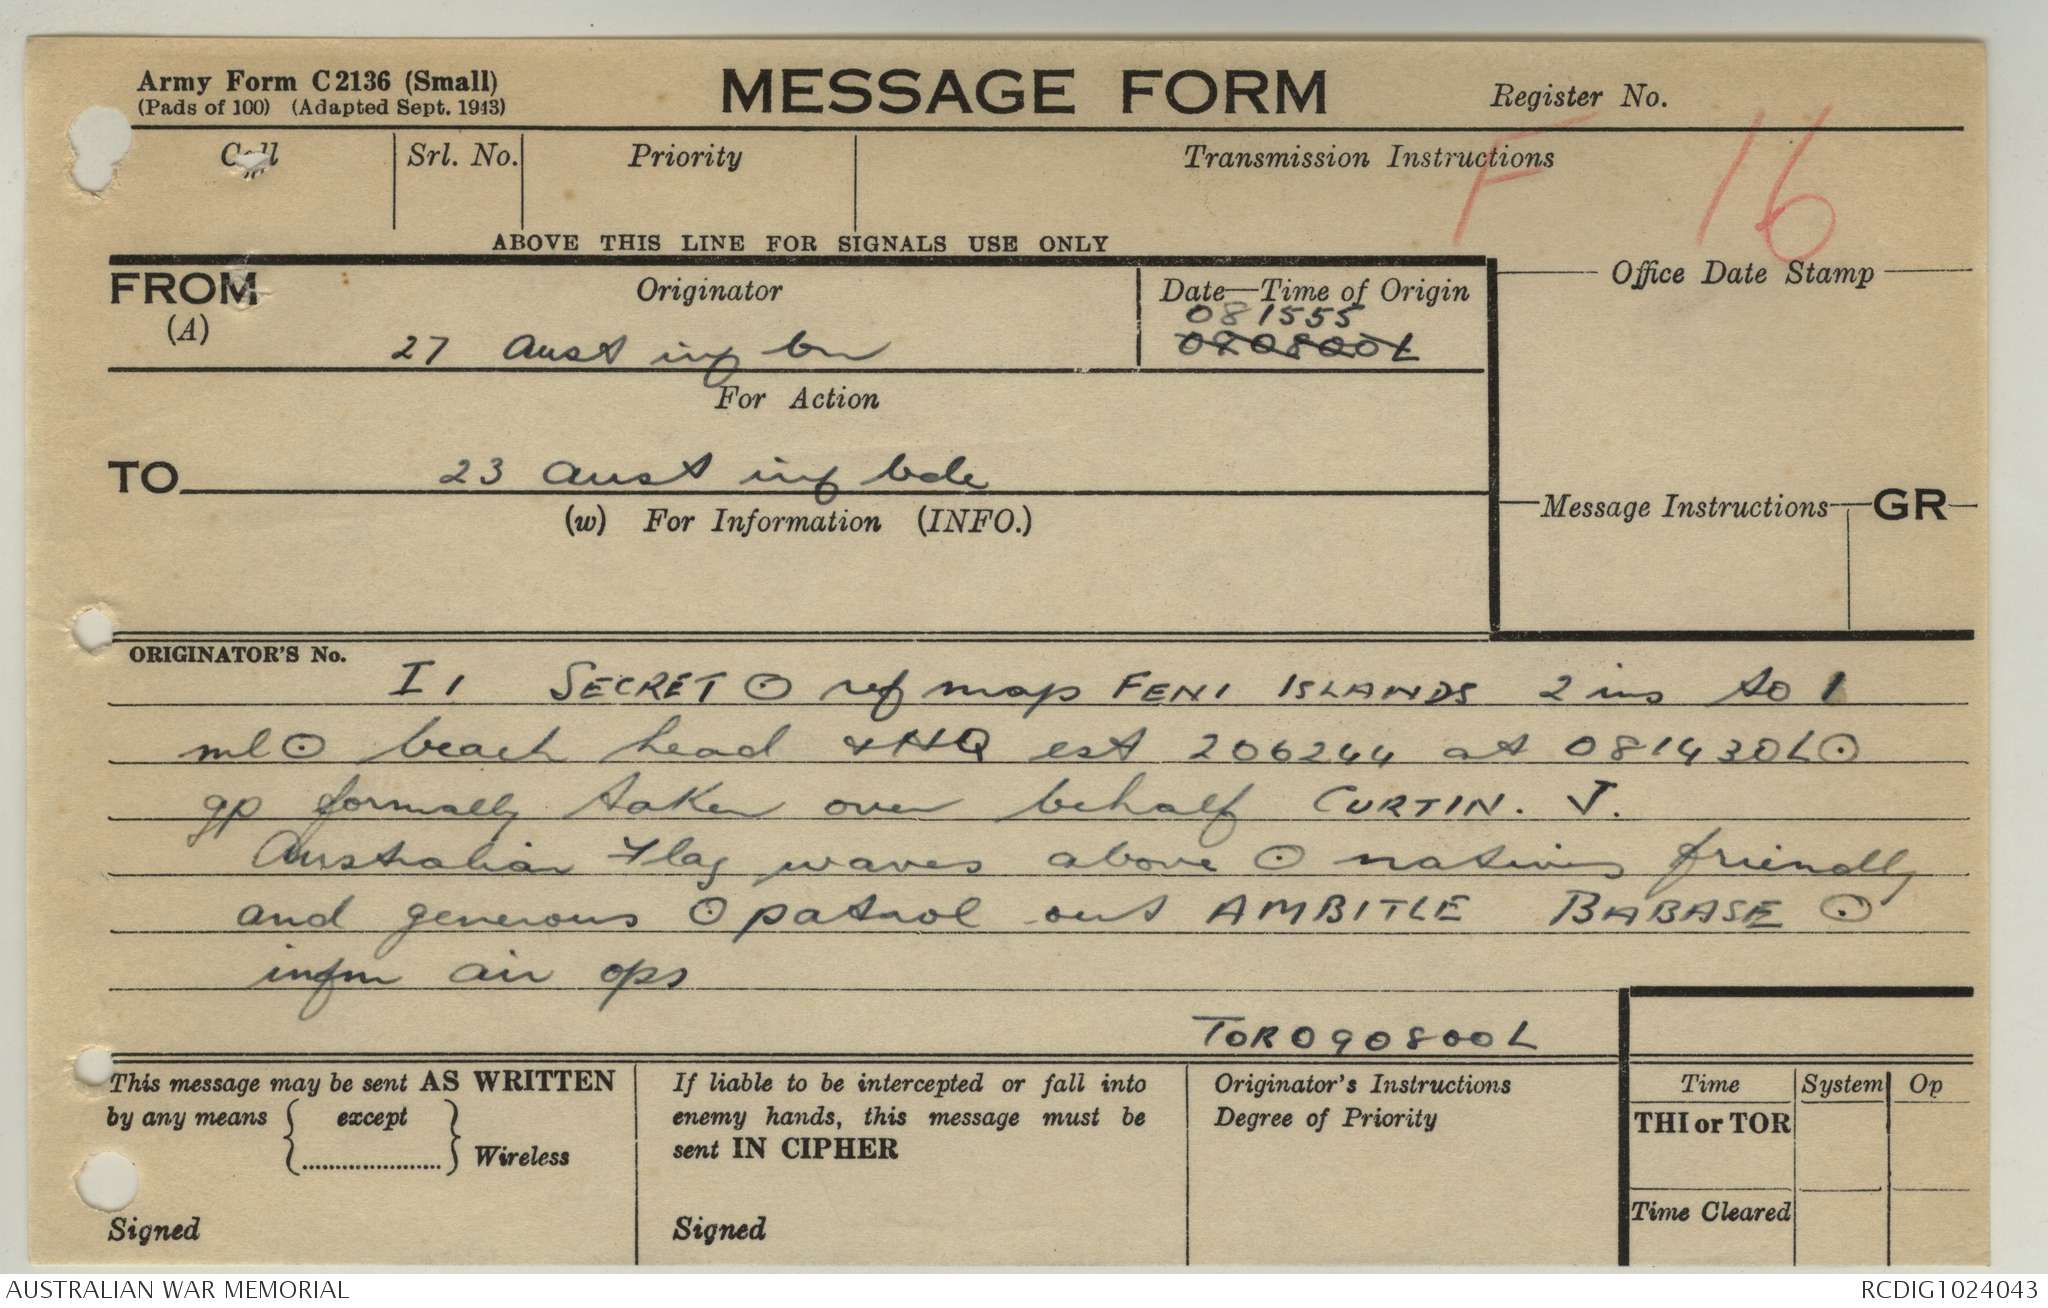 Army Form C2136 (Small)
(Pads of 100) (Adapted Sept. 1943)
MESSAGE FORM
Register No.
F 16
Call
Srl. No.
Priority
Transmission Instructions
ABOVE THIS LINE FOR SIGNALS USE ONLY
FROM
(A)
Originator
Date—Time of Origin
Office Date Stamp
081555
27 Aust inf bn
For Action
TO
23 Aust inf bde
(w) For Information (INFO.)
Message Instructions
GR
ORIGINATOR'S No.
I1 SECRET ⊙ ref map FENI ISLANDS 2 ins to 1
ml ⊙ beach head & HQ est 206244 at 081430L ⊙
gp formally taken over behalf CURTIN. J.
Australian Flag waves above ⊙ natives friendly
and generous ⊙ patrol out AMBITLE BABASE ⊙
infm air ops
TOR 090800L
This message may be sent AS WRITTEN
by any means { except
..................... } Wireless
Signed
If liable to be intercepted or fall into
enemy hands, this message must be
sent IN CIPHER
Signed
Originator's Instructions
Degree of Priority
Time
System
Op
THI or TOR
Time Cleared
AUSTRALIAN WAR MEMORIAL
RCDIG1024043